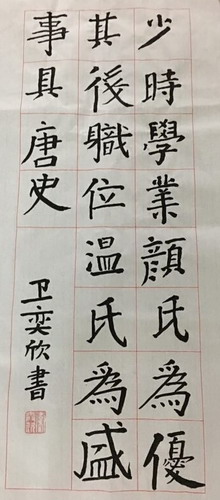 少時學業顏氏為優
其後職位温氏為盛
事具唐史
卫奕欣書